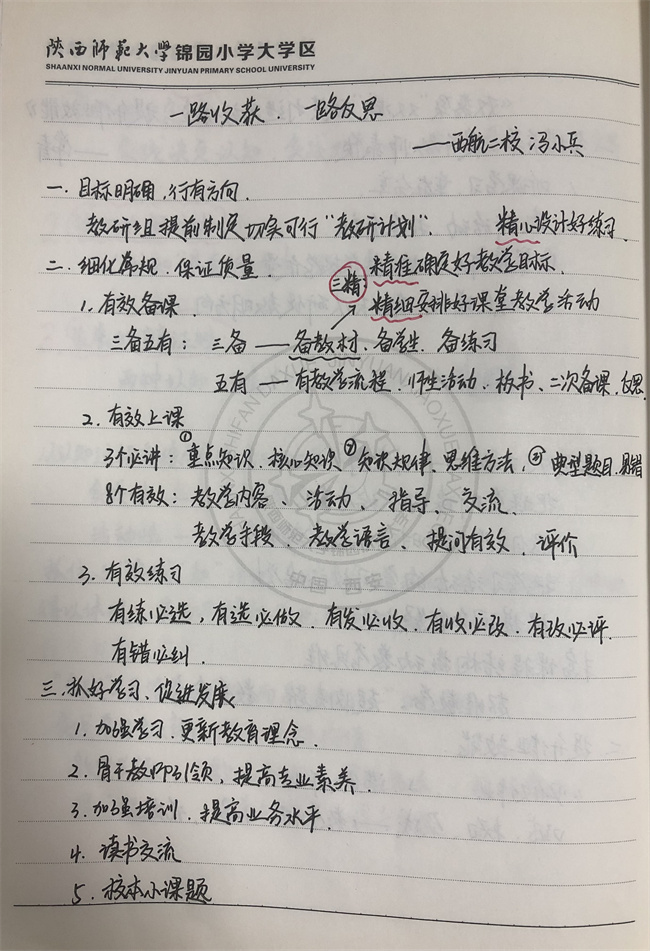 陕西师范大学锦园小学大学区
SHAANXI NORMAL UNIVERSITY JINYUAN PRIMARY SCHOOL UNIVERSITY
一路收获. 一路反思
——西航二校 冯小兵
一. 目标明确,行有方向.
教研组提前制定切实可行"教研计划"
精心设计好练习.
二. 细化常规. 保证质量.
三精: 精准确定好教学目标.
1. 有效备课.
精细安排好课堂教学活动
三备五有: 三备——备教材、备学生、备练习
五有——有教学流程、师生活动、板书、二次备课、反思.
2. 有效上课
3个必讲: ①重点知识、核心知识 ②知识规律、思维方法, ③典型题目、易错
8个有效: 教学内容、活动、指导、交流、
教学手段、教学语言、提问有效、评价
中国 西安
3. 有效练习
有练必选, 有选必做. 有发必收. 有收必改. 有改必评.
有错必纠.
三. 抓好学习、促进发展.
1. 加强学习. 更新教育理念.
2. 骨干教师引领, 提高专业素养.
3. 加强培训. 提高业务水平.
4. 读书交流
5. 校本小课题